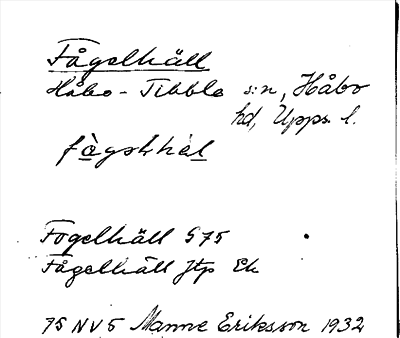 Fågelhäll
Håbo-Tibble s:n, Håbo
hd, Upps. l.
Fogelhäll S75
Fågelhäll Jtp Ek
75 NV5 Manne Eriksson 1932